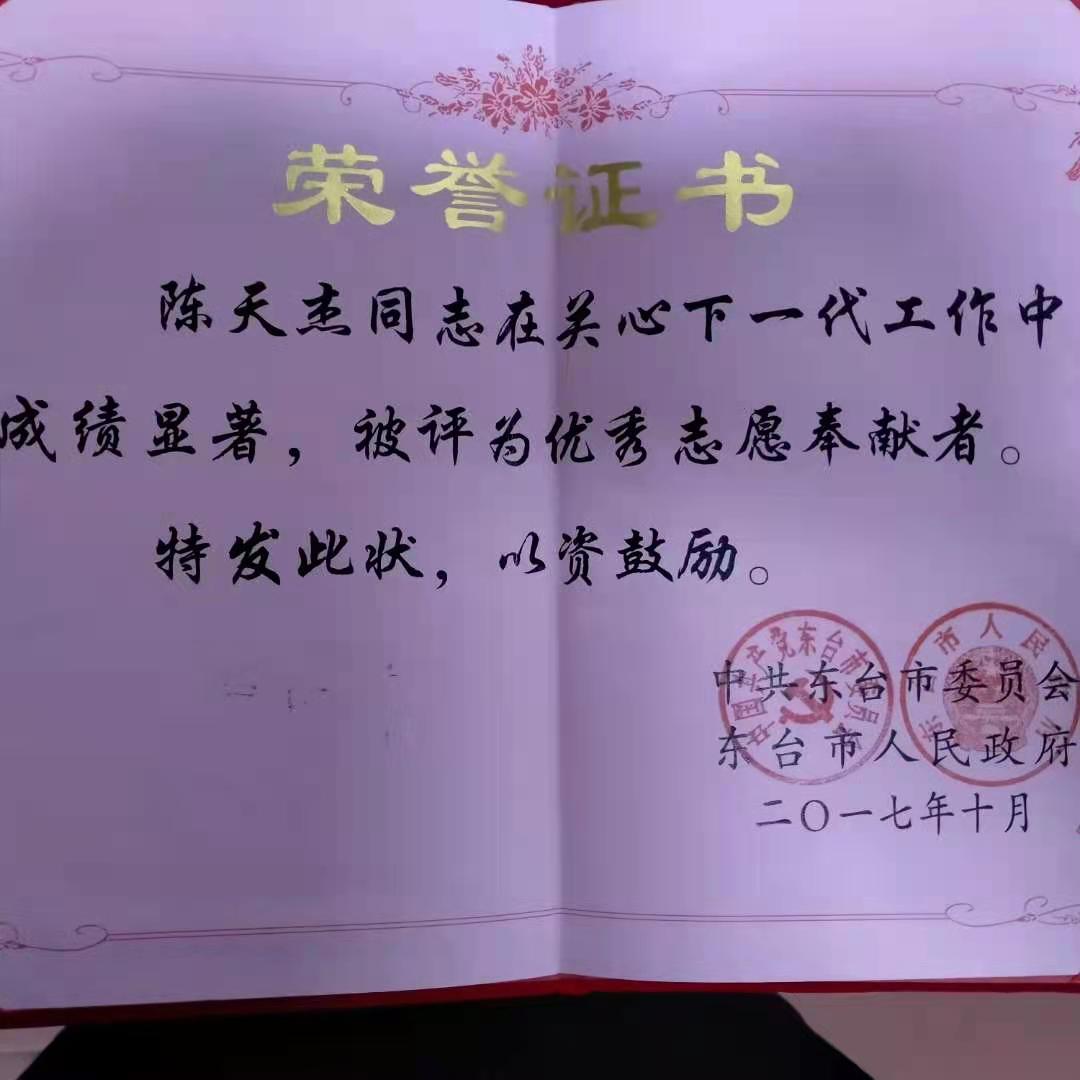 荣誉证书
陈天杰同志在关心下一代工作中
成绩显著，被评为优秀志愿奉献者。
特发此状，以资鼓励。
中国共产党东台市委员会
市人民
中共东台市委员会
东台市人民政府
二〇一七年十月